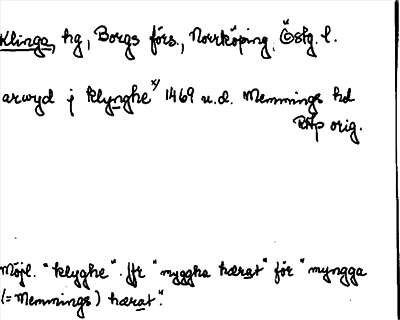 Klinga, hg, Borgs förs., Norrköping, Östg. l.
arwyd j klynghe x) 1469 u.d. Memmings hd
RAp orig.
Möjl. "klyghe". Jfr "nyggha hærat" för "myngga
(= Memmings) hærat".